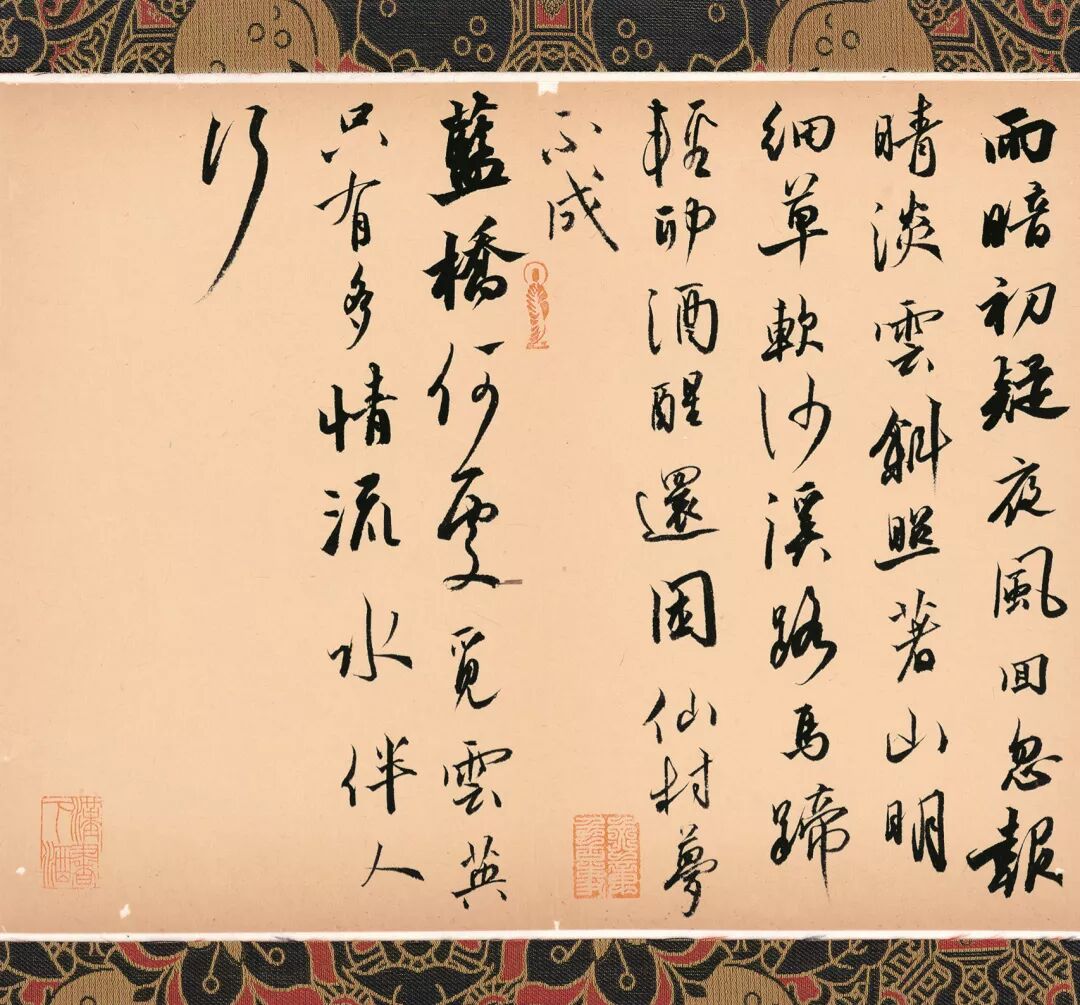 雨暗初疑夜風回忽報
晴淡雲斜照著山明
細草軟沙溪路馬蹄
輕卯酒醒還困仙村夢
不成
藍橋何處覓雲英
只有多情流水伴人
行
漢書
下酒